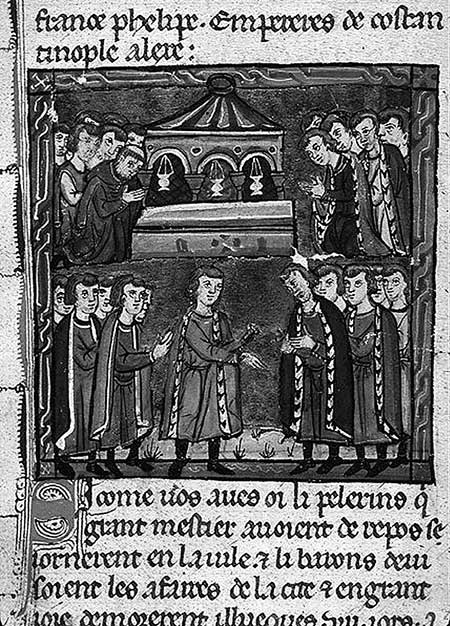 france phelipe. Empereres de costan
tinople alexe:
Si come uos aues oi li pelerins q̄
grant mestier auoient de repos se
iornerent en la uile. ⁊ li barons deui
soient les afaires de la cite ⁊ en grant
ioie demorerent illueques